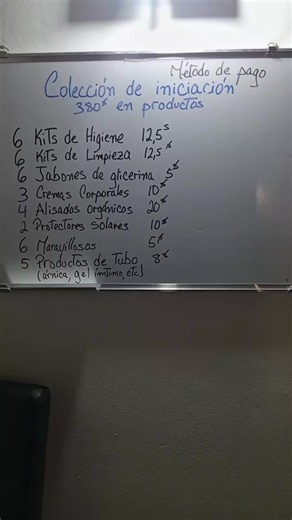 Método de pago
Colección de iniciación
380$ en productos
6 Kits de Higiene 12,5$
6 Kits de Limpieza 12,5$
6 Jabones de glicerina 5$
3 Cremas Corporales 10$
4 Alisados orgánicos 20$
2 Protectores solares 10$
6 Maravillosas 5$
5 Productos de Tubo 8$
(árnica, gel íntimo, etc)